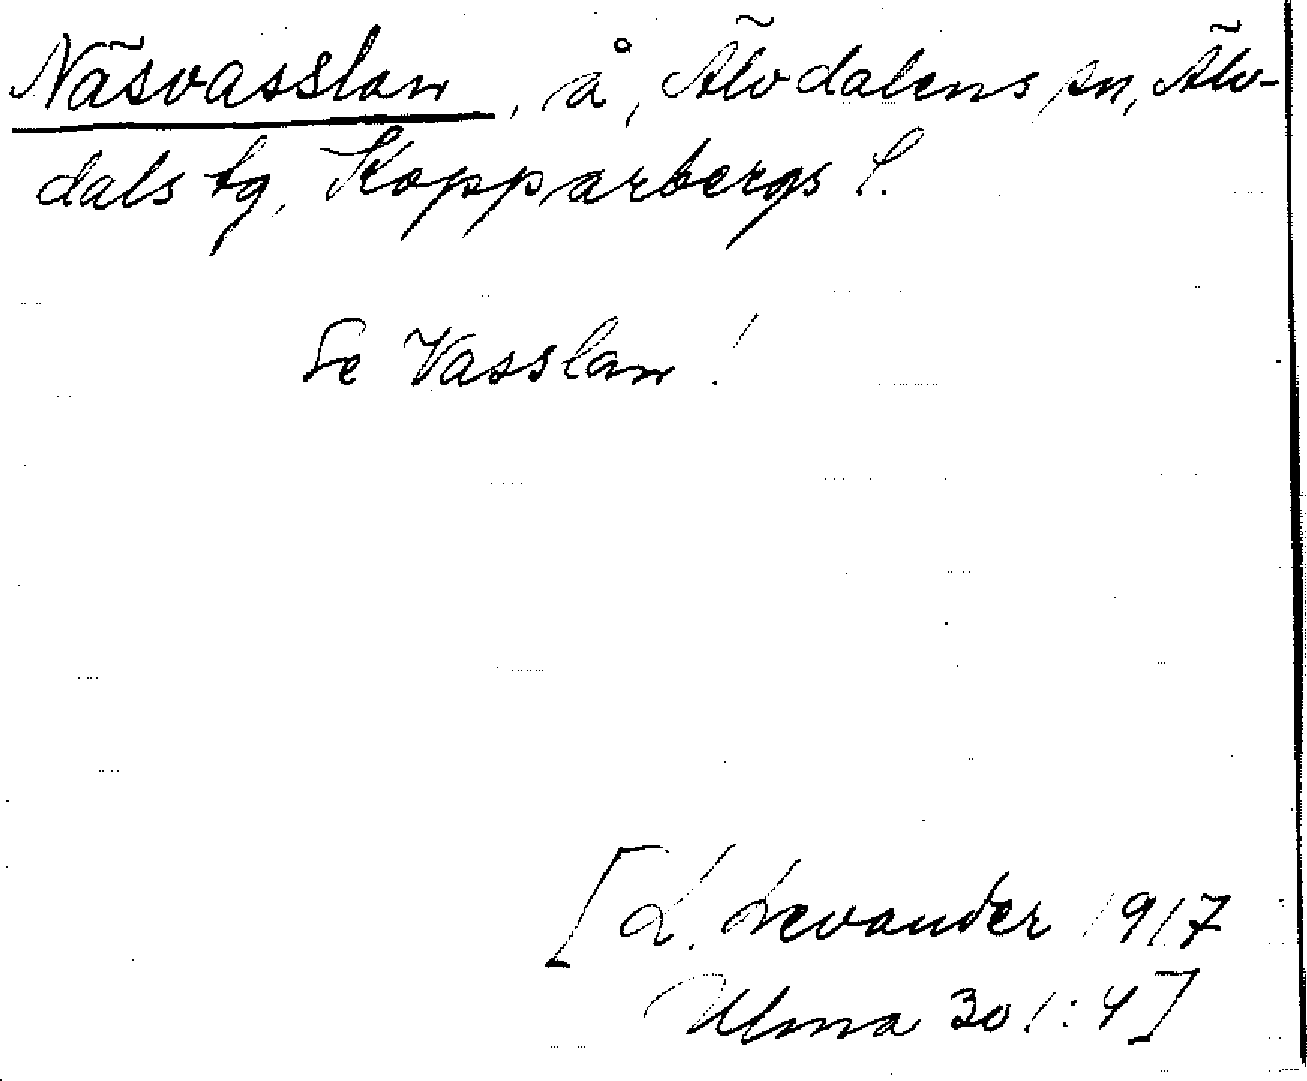 Näsvasslan, å, Älvdalens sn, Älv-
dals tg, Kopparbergs l.
Se Vasslan!
[L. Levander 1917
Ulma 301:4]